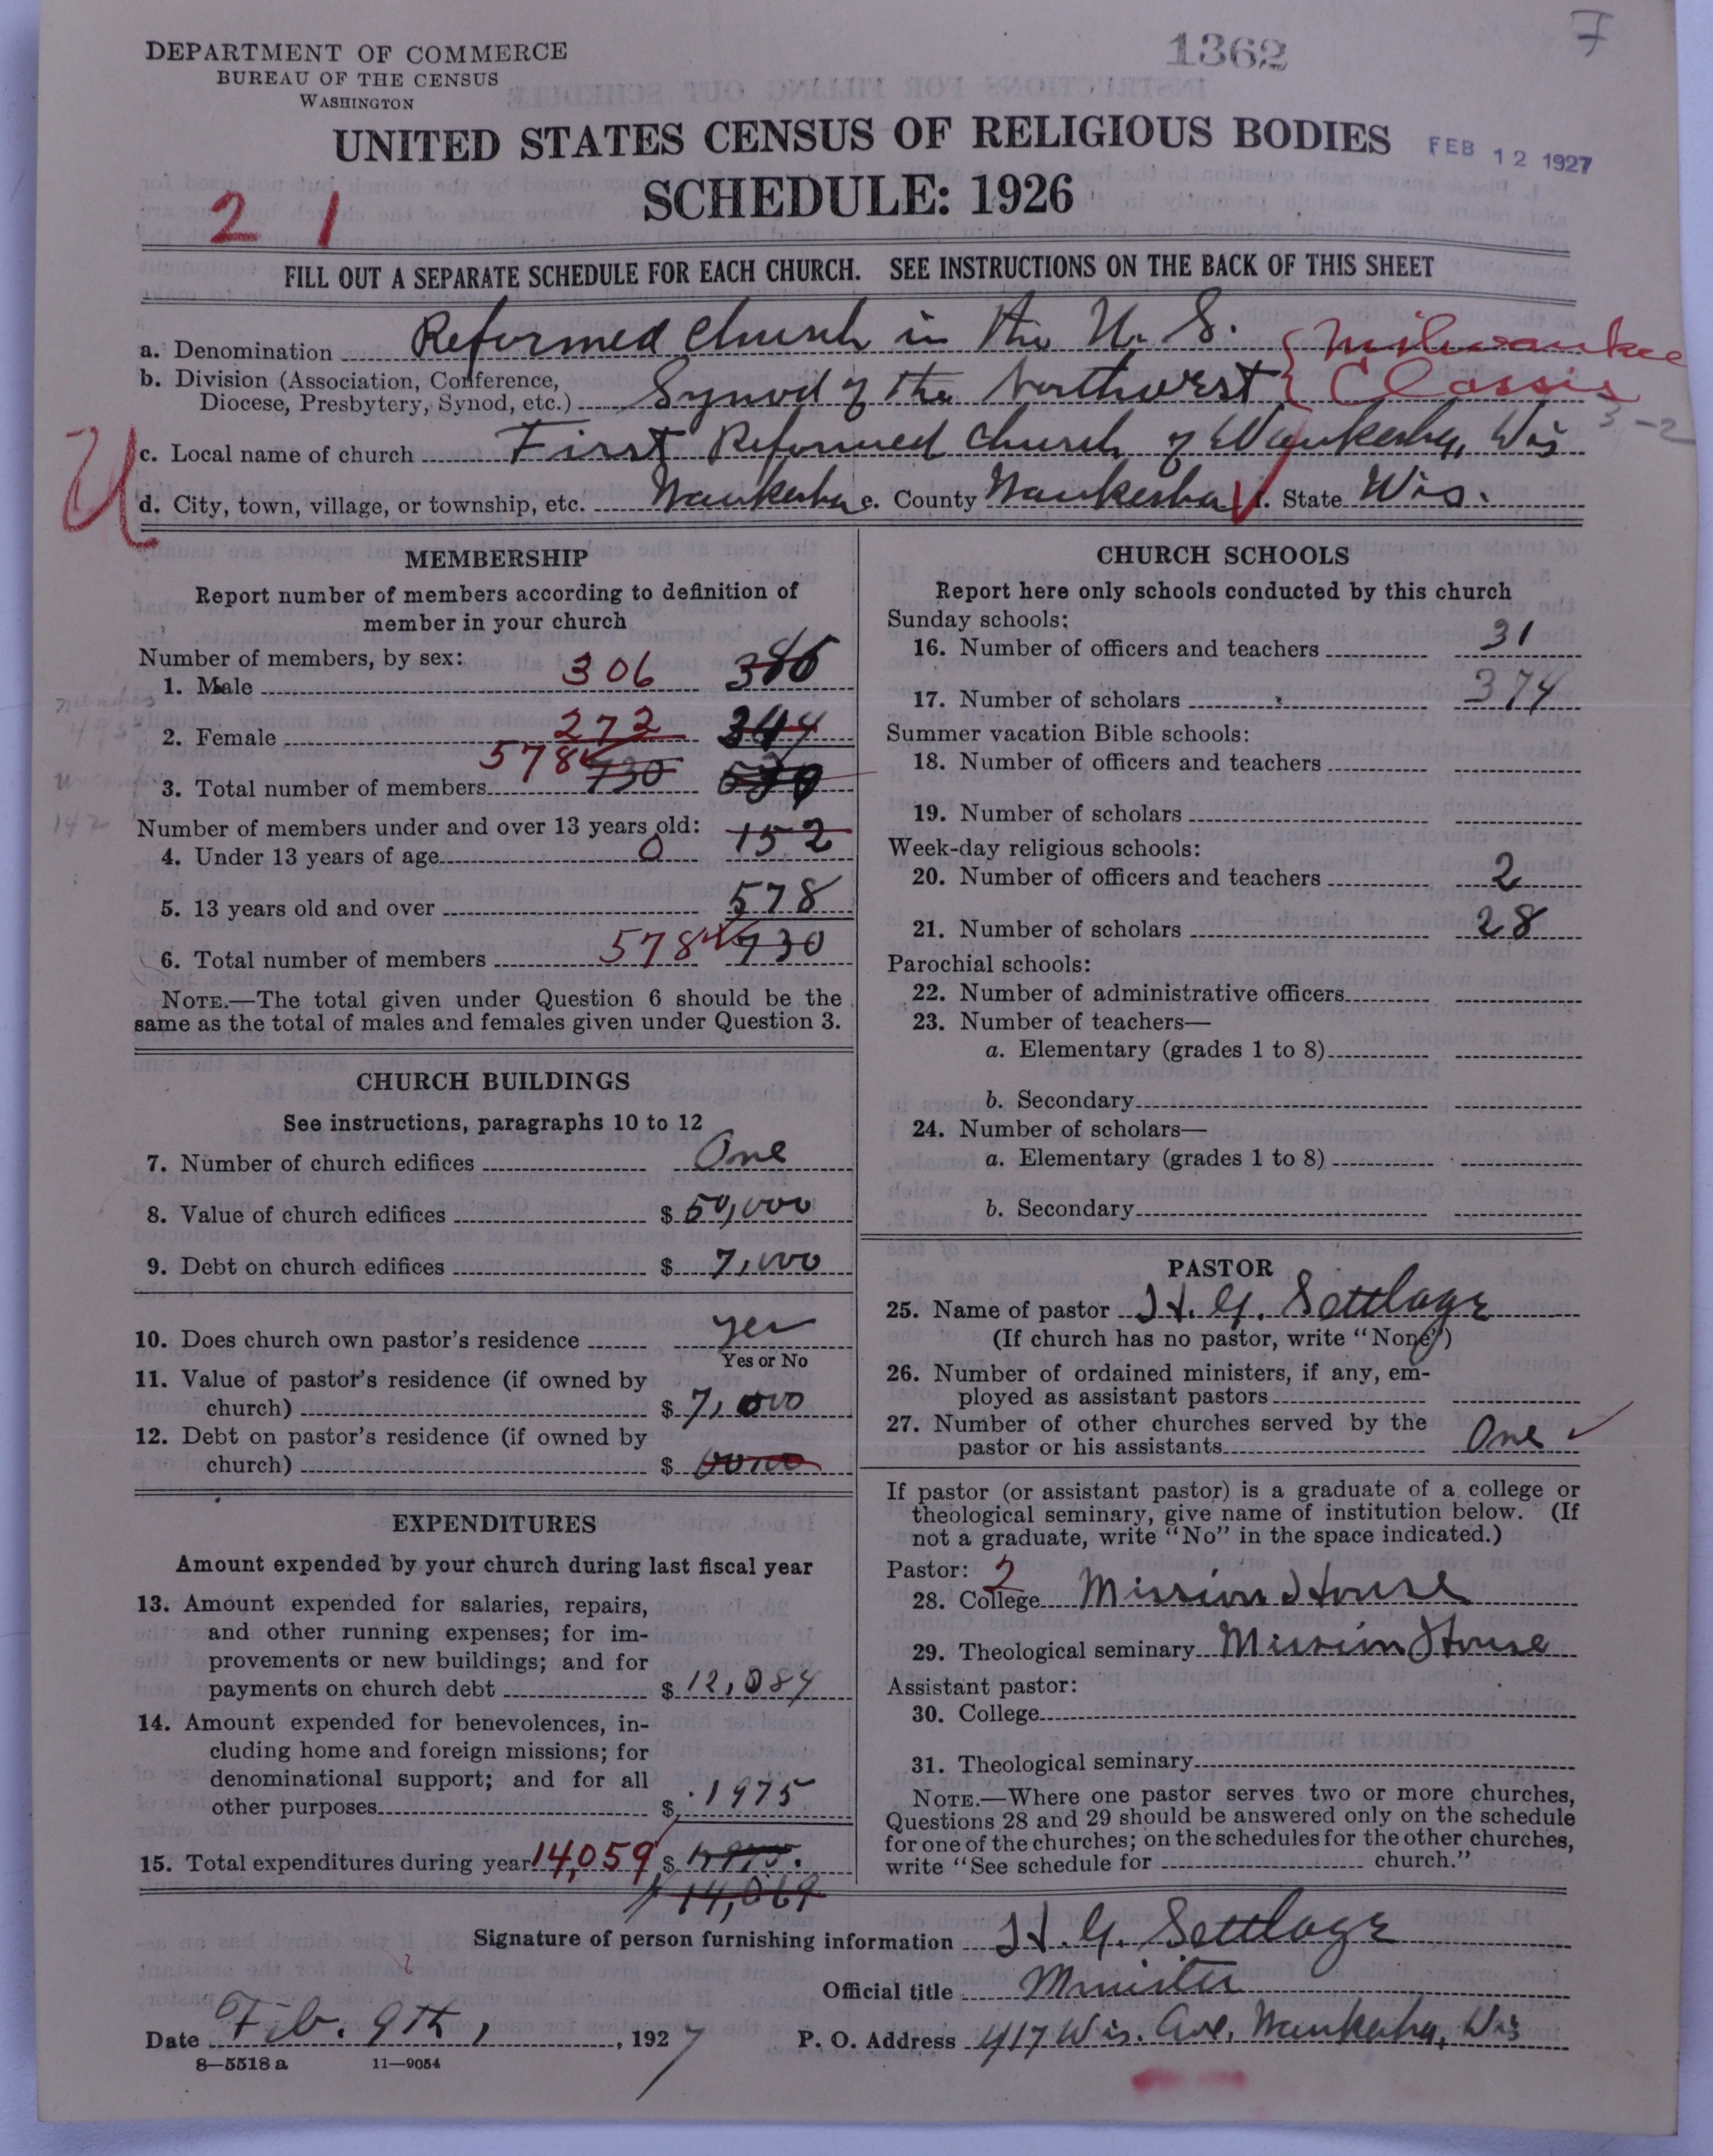 DEPARTMENT OF COMMERCE
BUREAU OF THE CENSUS
WASHINGTON
1362
7
UNITED STATES CENSUS OF RELIGIOUS BODIES
FEB 12 1927
SCHEDULE: 1926
2 1
FILL OUT A SEPARATE SCHEDULE FOR EACH CHURCH. SEE INSTRUCTIONS ON THE BACK OF THIS SHEET
a. Denomination Reformed Church in the U. S.
b. Division (Association, Conference, Diocese, Presbytery, Synod, etc.) Synod of the Northwest { Milwaukee Classis
3-2
U
c. Local name of church First Reformed Church of Waukesha, Wis
d. City, town, village, or township, etc. Waukesha e. County Waukesha f. State Wis.
MEMBERSHIP
Report number of members according to definition of
member in your church
Number of members, by sex:
1. Male 306 386
2. Female 272 344
3. Total number of members 578 730
Number of members under and over 13 years old:
142
4. Under 13 years of age 0 152
5. 13 years old and over 578
6. Total number of members 578 730
NOTE.—The total given under Question 6 should be the
same as the total of males and females given under Question 3.
CHURCH BUILDINGS
See instructions, paragraphs 10 to 12
7. Number of church edifices One
8. Value of church edifices $ 50,000
9. Debt on church edifices $ 7,000
10. Does church own pastor's residence yes
Yes or No
11. Value of pastor's residence (if owned by
church) $ 7,000
12. Debt on pastor's residence (if owned by
church) $
EXPENDITURES
Amount expended by your church during last fiscal year
13. Amount expended for salaries, repairs,
and other running expenses; for im-
provements or new buildings; and for
payments on church debt $ 12,084
14. Amount expended for benevolences, in-
cluding home and foreign missions; for
denominational support; and for all
other purposes $ 1975
15. Total expenditures during year 14,059 $
14,069
CHURCH SCHOOLS
Report here only schools conducted by this church
Sunday schools:
16. Number of officers and teachers 31
17. Number of scholars 374
Summer vacation Bible schools:
18. Number of officers and teachers
19. Number of scholars
Week-day religious schools:
20. Number of officers and teachers 2
21. Number of scholars 28
Parochial schools:
22. Number of administrative officers
23. Number of teachers—
a. Elementary (grades 1 to 8)
b. Secondary
24. Number of scholars—
a. Elementary (grades 1 to 8)
b. Secondary
PASTOR
25. Name of pastor H. G. Settlage
(If church has no pastor, write "None")
26. Number of ordained ministers, if any, em-
ployed as assistant pastors
27. Number of other churches served by the
pastor or his assistants One
If pastor (or assistant pastor) is a graduate of a college or
theological seminary, give name of institution below. (If
not a graduate, write "No" in the space indicated.)
Pastor: 2
28. College Mission House
29. Theological seminary Mission House
Assistant pastor:
30. College
31. Theological seminary
NOTE.—Where one pastor serves two or more churches,
Questions 28 and 29 should be answered only on the schedule
for one of the churches; on the schedules for the other churches,
write "See schedule for church."
Signature of person furnishing information H. G. Settlage
Official title Minister
Date Feb. 9th, , 1927 P. O. Address 417 Wis. Ave, Waukesha, Wis
8—5518 a 11—9054